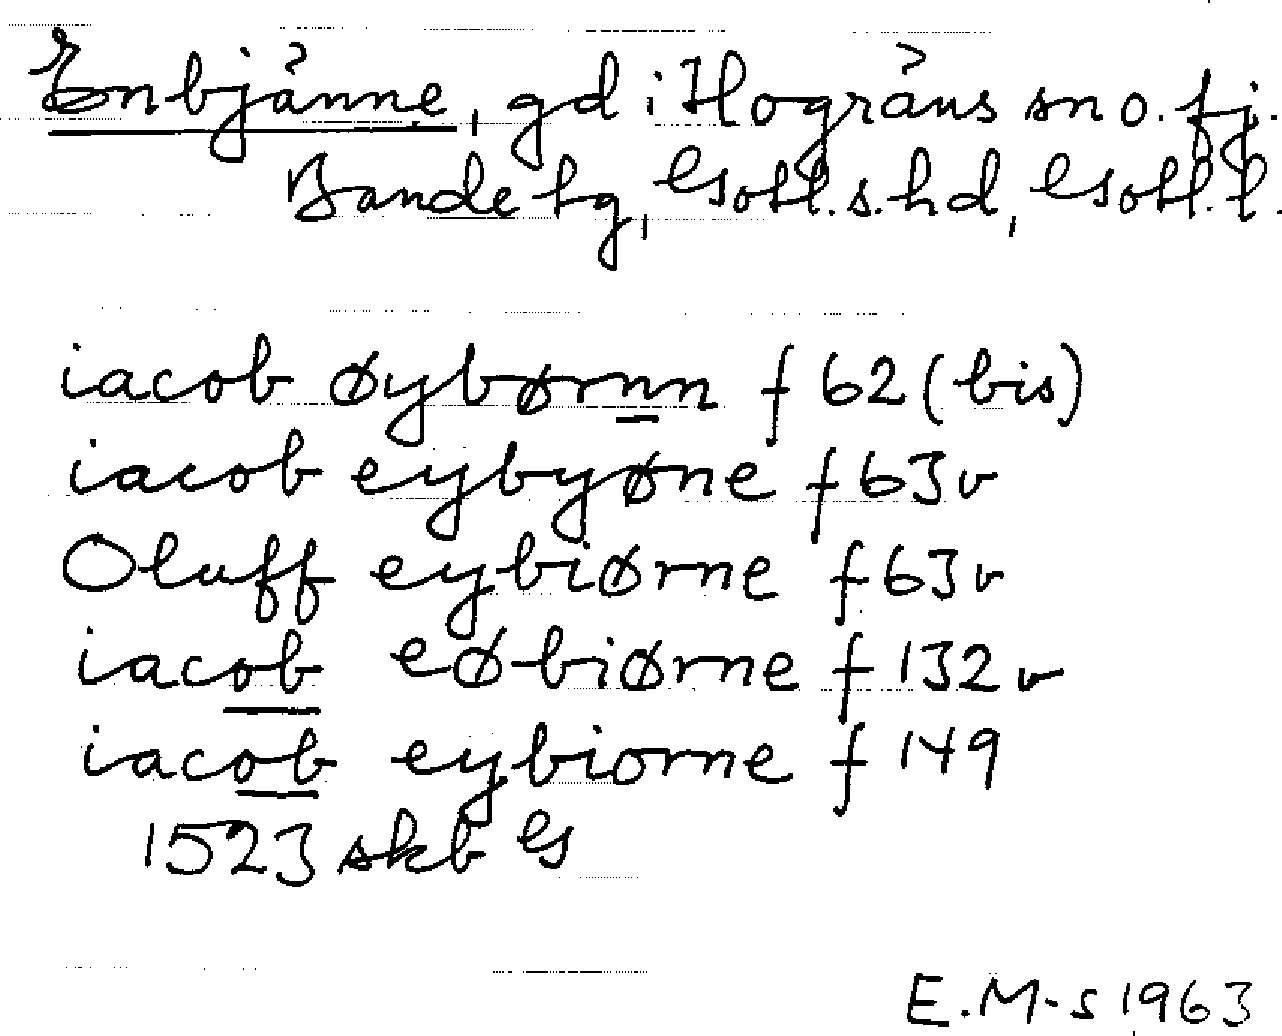 Enbjänne, gd i Hogräns sn o. fj.
Bande tg, Gotl. s. hd, Gotl. l.
iacob øybørnn f 62 (bis)
iacob eybyøne f 63 v
Oluff eybiørne f 63 v
iacob eøbiørne f 132 v
iacob eybiorne f 149
1523 skb G
E. M-s 1963